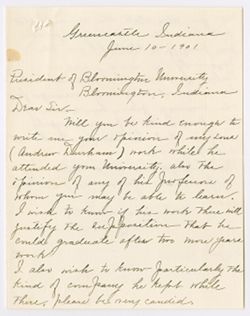 Greencastle Indiana
June 10 - 1901
President of Bloomington University
Bloomington, Indiana
Dear Sir.
Will you be kind enough to
write me your opinion of my sons
(Andrew Durham) work while he
attended your University. also the
opinion of any of his Professors of
whom you may be able to learn.
I wish to know if his work there will
justify the supposition that he
could graduate after two more years
work.
I also wish to know particularly the
kind of company he kept while
there, please be very candid.